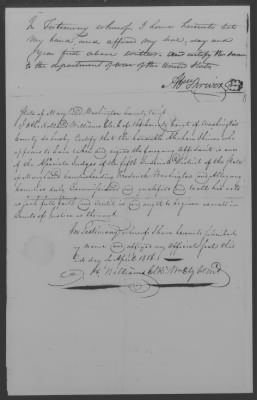 In Testimony whereof I have hereunto set
my hand and affixed my seal, day and
year first above written. and certify the same
to the department of war of the United States
State of Maryland Washington County to wit
I Otho Holland Williams Clerk of the County Court of Washington
County do hereby Certify that the
appears to have taken and signed the foregoing affidavit is one
of the Associate Judges of the fifth Judicial District of the State
of Maryland Comprehending Frederick Washington and Allegany
Counties duly Commissioned and qualified and to all his acts
as such full faith and Credit is and ought to be given as well in
Courts of Justice as thereout
In Testimony whereof I have hereunto subscribed
my name and affixed my Official Seal this
day of April 1818
O H Williams Clk